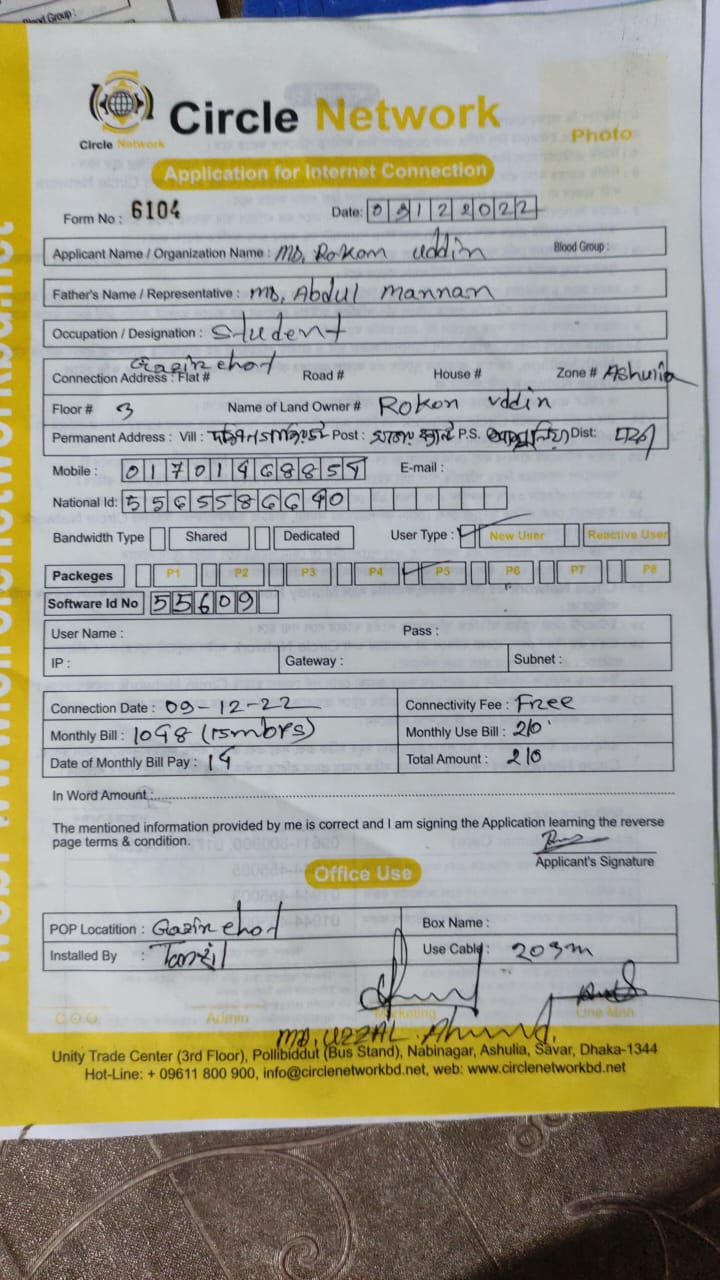 Blood Group :
Circle Network
Circle Network
Photo
Application for Internet Connection
Form No : 6104 Date: 09122022
Applicant Name / Organization Name : MD, Rokon uddin Blood Group :
Father's Name / Representative : MD, Abdul mannan
Occupation / Designation : student
Connection Address : Flat # Road # House # Zone # Ashulia
Floor # 3 Name of Land Owner # Rokon uddin
Permanent Address : Vill : Post : P.S. Dist:
Mobile : E-mail :
National Id:
Bandwidth Type Shared Dedicated User Type : New User Reactive User
Packeges P1 P2 P3 P4 P5 P6 P7 P8
Software Id No 55609
User Name : Pass :
IP : Gateway : Subnet :
Connection Date : 09-12-22 Connectivity Fee : Free
Monthly Bill : (15mbps) Monthly Use Bill : 210
Date of Monthly Bill Pay : Total Amount : 210
In Word Amount :
The mentioned information provided by me is correct and I am signing the Application learning the reverse
page terms & condition.
Applicant's Signature
Office Use
POP Locatition : Box Name :
Installed By : Tanzil Use Cable : 203m
C.O.O. Admin Marketing Line Man
MD. UZZAL Ahmed.
Unity Trade Center (3rd Floor), Pollibiddut (Bus Stand), Nabinagar, Ashulia, Savar, Dhaka-1344
Hot-Line: + 09611 800 900, info@circlenetworkbd.net, web: www.circlenetworkbd.net